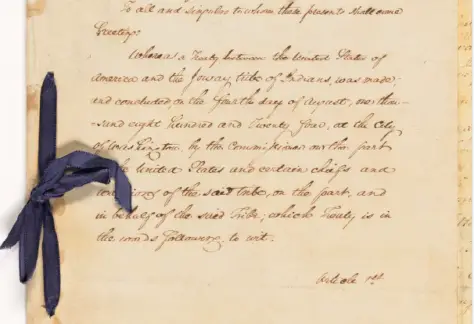 To all and singular to whom these presents shall come
Greeting:
Whereas a Treaty between the United States of
America and the Ioway tribe of Indians, was made
and concluded, on the fourth day of August, one thou-
-sand eight Hundred and Twenty four, at the City
of Washington, by the Commissioner on the part
the United States and certain chiefs and
of the said tribe, on the part, and
in behalf of the said Tribe; which Treaty is in
the words following, to wit:
Article 1st.